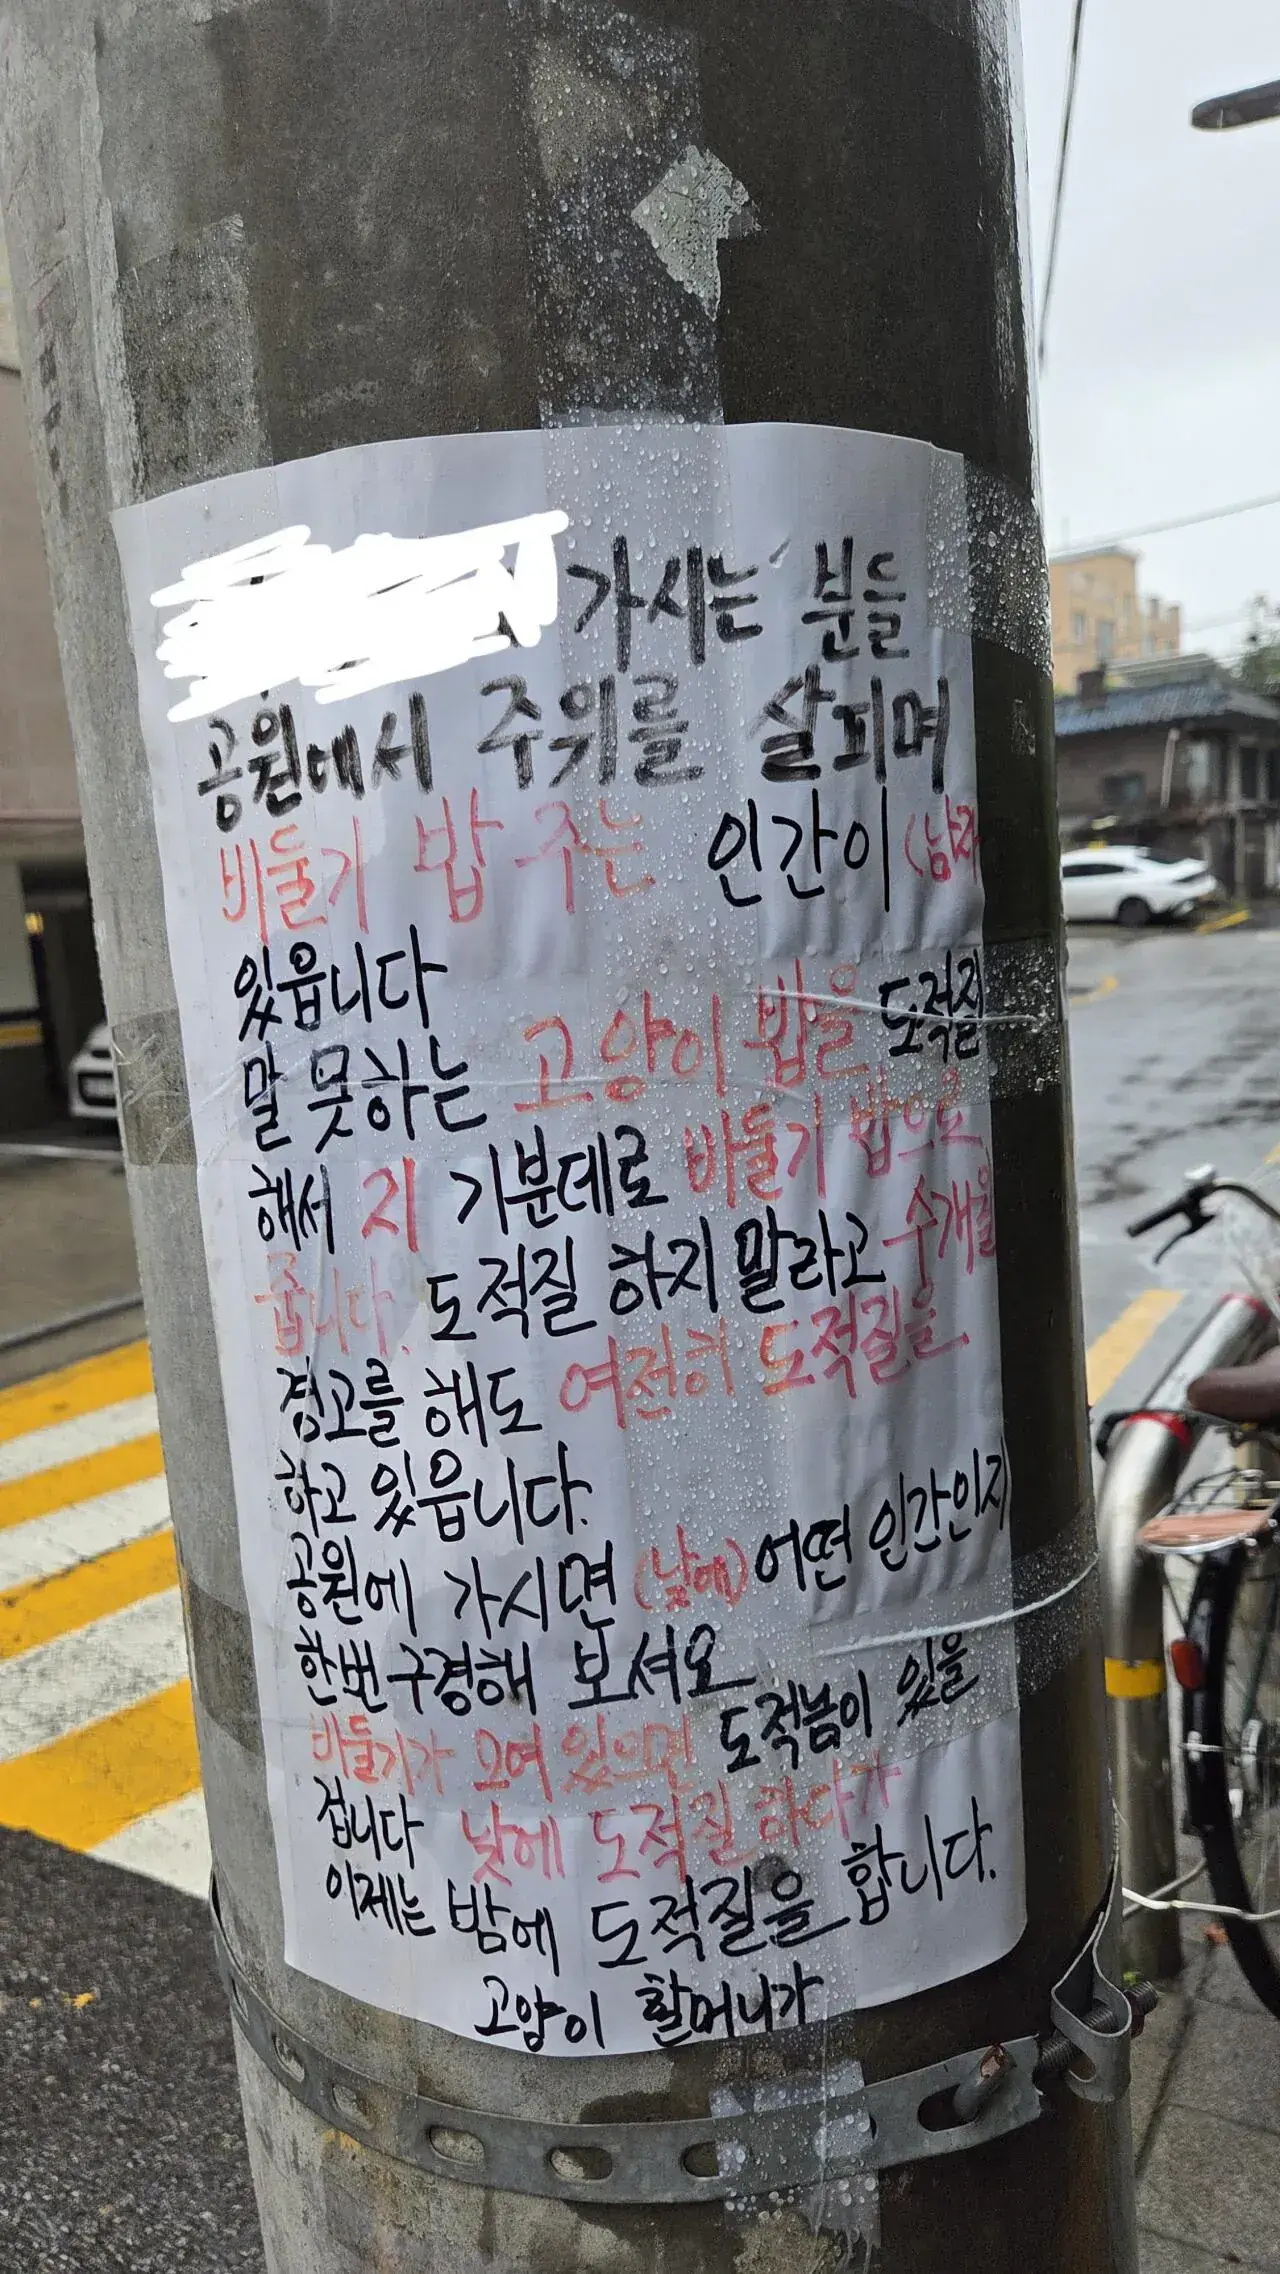 가시는 분들
공원에서 주위를 살피며
비둘기 밥 주는 인간이 (남자
있읍니다
말 못하는 고양이 밥을 도적질
해서 지 기분데로 비둘기 밥으로
줍니다. 도적질 하지 말라고 수개월
경고를 해도 여전히 도적질을
하고 있읍니다.
공원에 가시면 (낮에) 어떤 인간인지
한번 구경해 보셔요
비둘기가 모여 있으면 도적놈이 있을
겁니다 낮에 도적질 하다가
이제는 밤에 도적질을 합니다.
고양이 할머니가